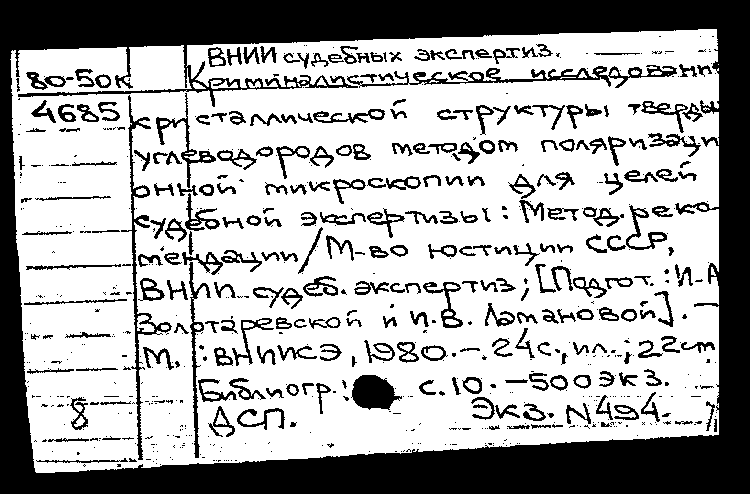 ВНИИ судебных экспертиз.
80-50к Криминалистическое исследование
4685 кристаллической структуры тверды
углеводородов методом поляризаци
онной микроскопии для целей
судебной экспертизы: Метод. реко-
мендации/М-во юстиции СССР,
ВНИИ судеб. экспертиз; [Подгот.: И.А
Золотаревской и И.В. Латановой]. —
М.: ВНИИСЭ, 1980. — 24с., ил.; 22см
Библиогр.: с.10. — 500 экз.
8 ДСП. Экз. N 494.